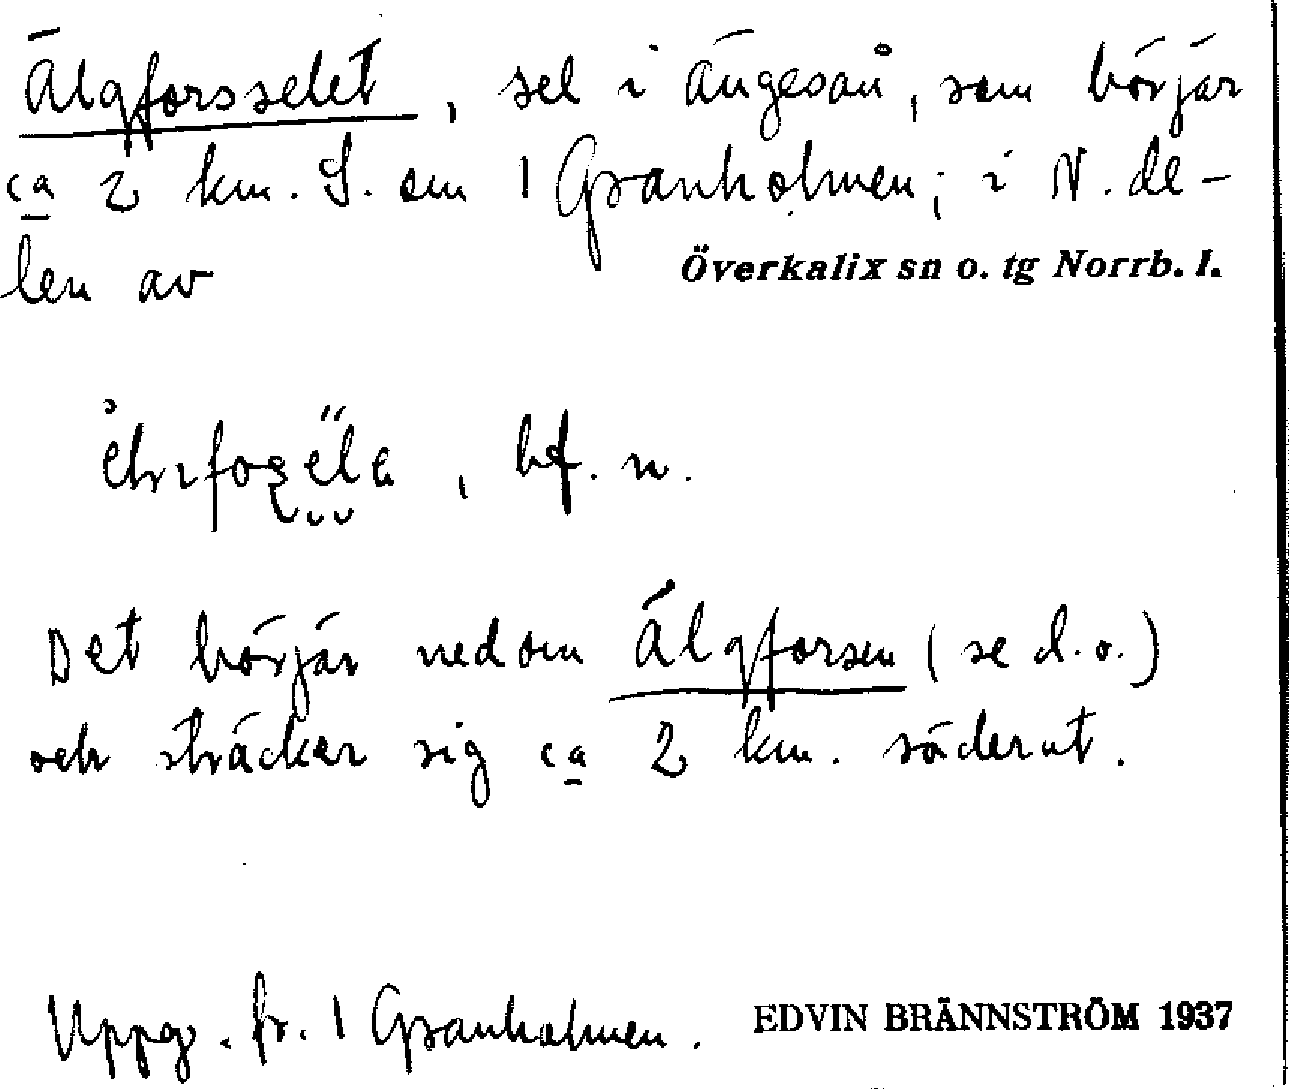 Älgforsselet, sel i Ängesån, som börjar
ca 2 km. S. om 1 Granholmen; i N. de-
len av Överkalix sn o. tg Norrb. l.
, bf. n.
Det börjar nedom Älgforsen (se d.o.)
och sträcker sig ca 2 km. söderut.
Uppg. fr. 1 Granholmen. EDVIN BRÄNNSTRÖM 1937